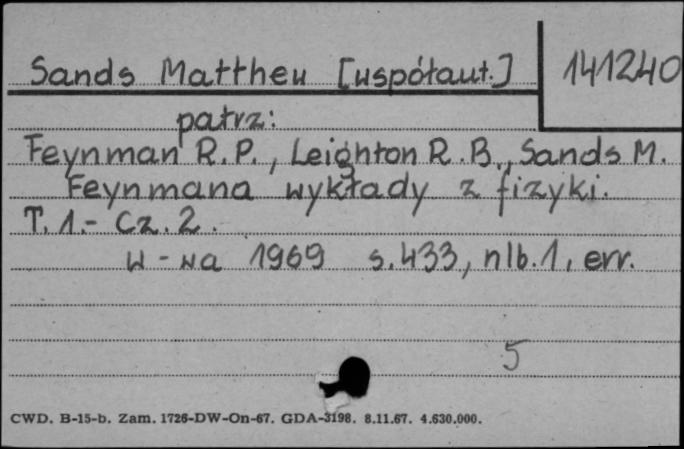 Sands Mattheu [uspółaut.] 141240
patrz:
Feynman R.P., Leighton R.B., Sands M.
Feynmana wykłady z fizyki.
T. 1.- Cz. 2.
W-wa 1969 s. 433, nlb. 1, err.
5
CWD. B-15-b. Zam. 1726-DW-On-67. GDA-3198. 8.11.67. 4.630.000.